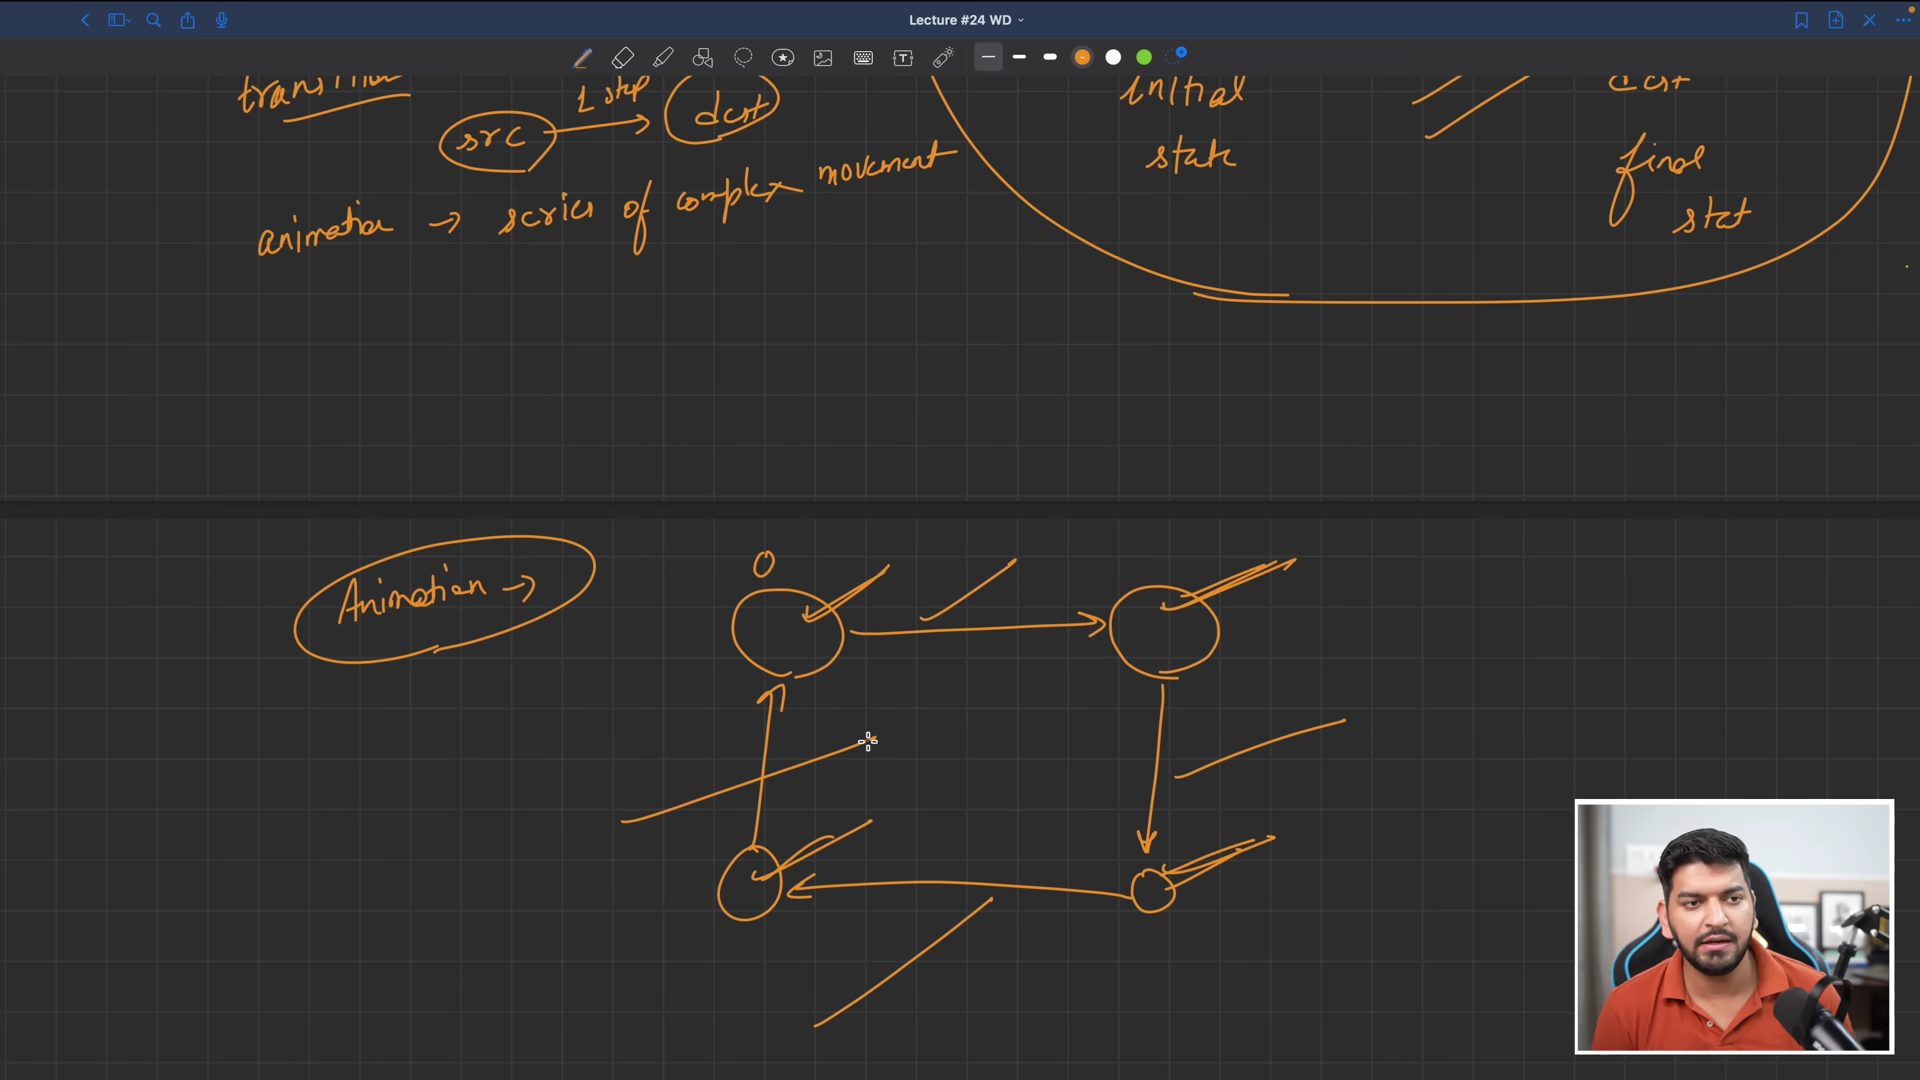 Lecture #24 WD
transition
1 step
src
dest
animation → series of complex movement
initial
state
dest
final
stat
Animation →
0